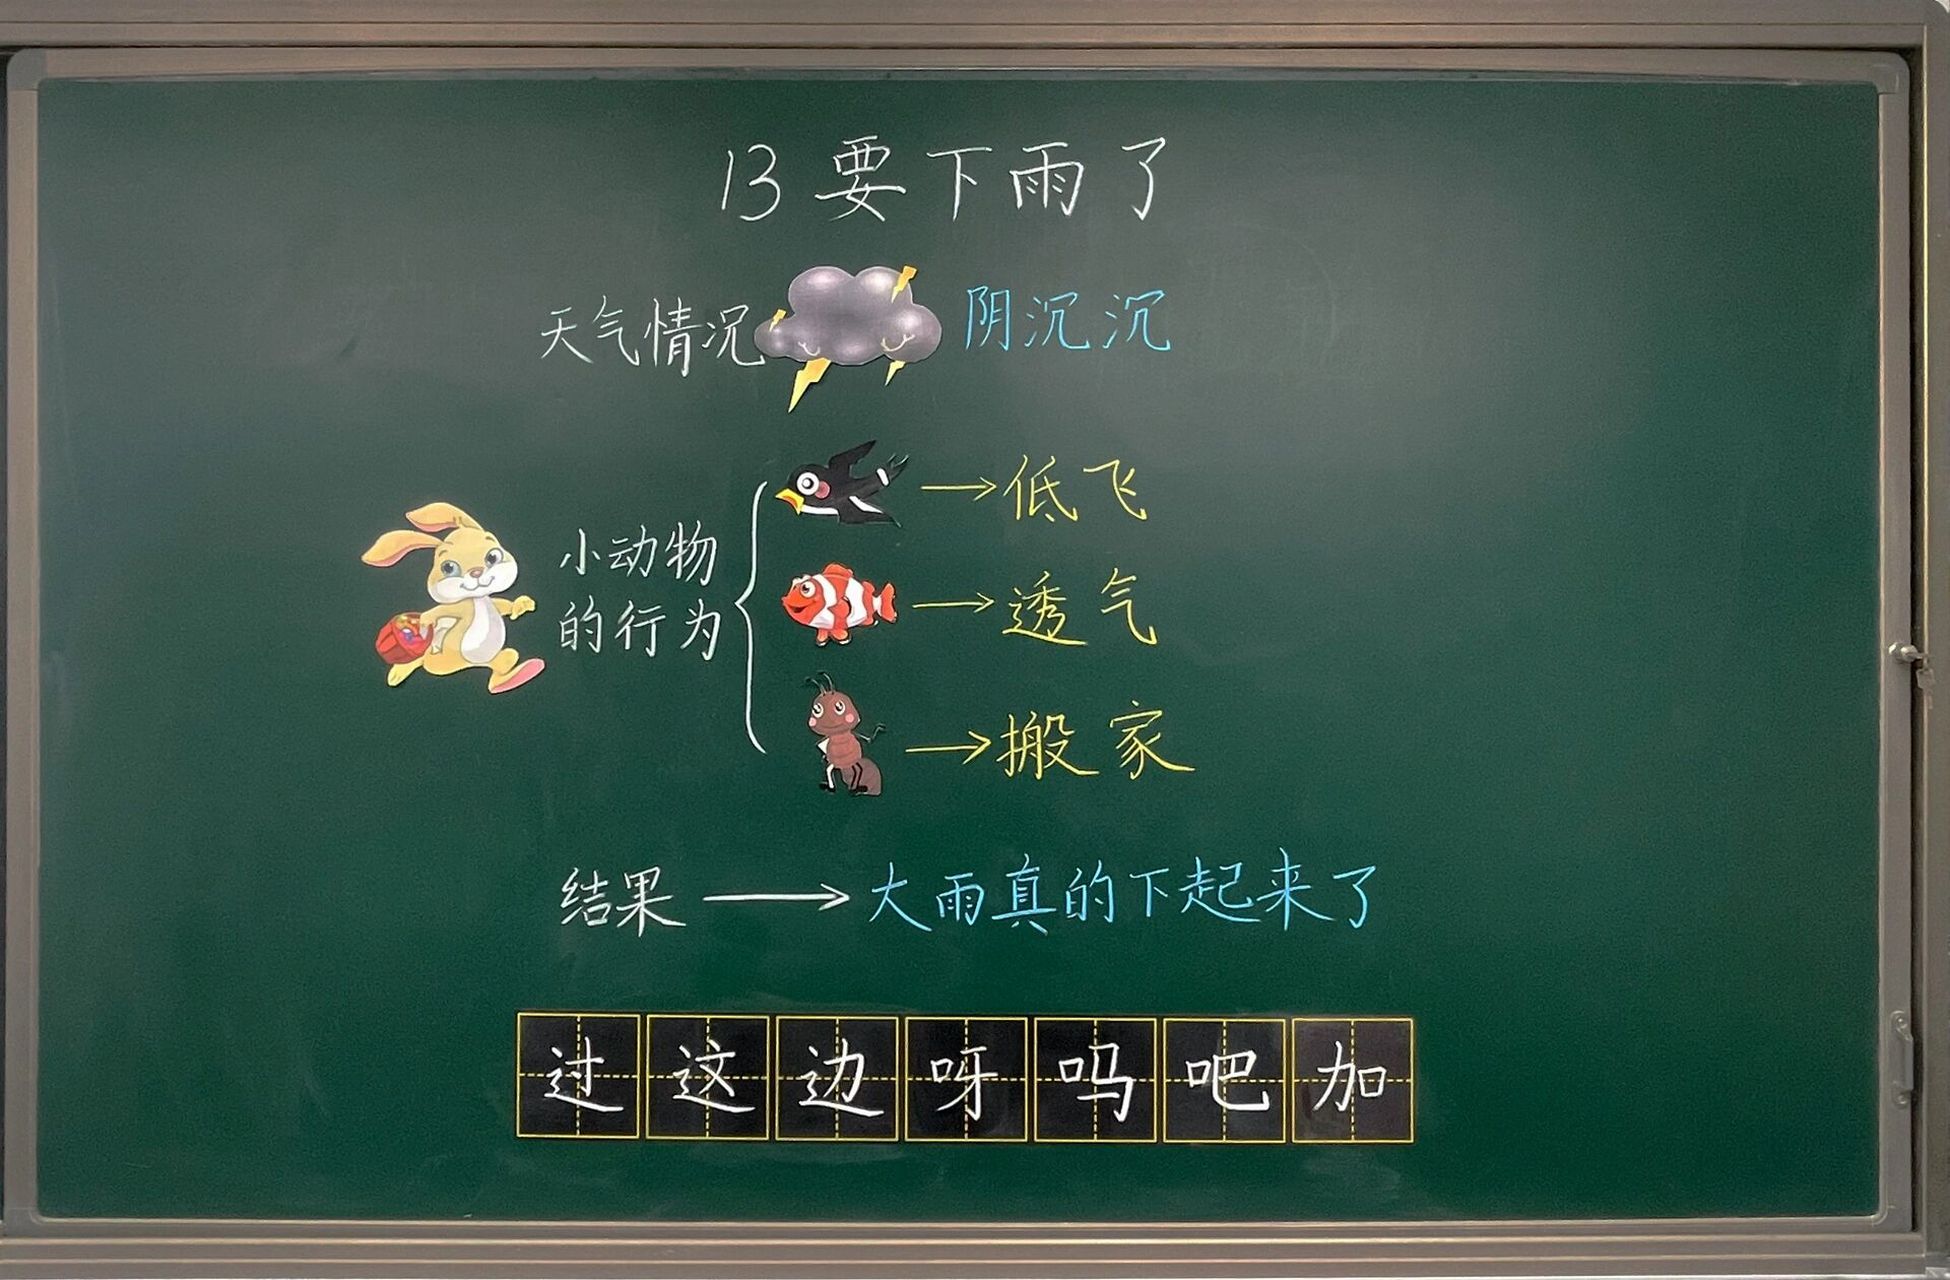 13 要下雨了
天气情况 阴沉沉
小动物
的行为
→低飞
→透气
→搬家
结果 → 大雨真的下起来了
过 这 边 呀 吗 吧 加